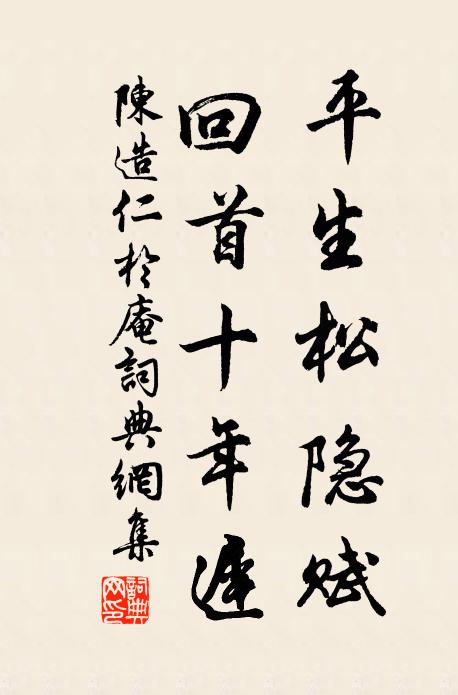 平生松隐赋
回首十年遲
陳造仁於庵詞典網集
詞典网印